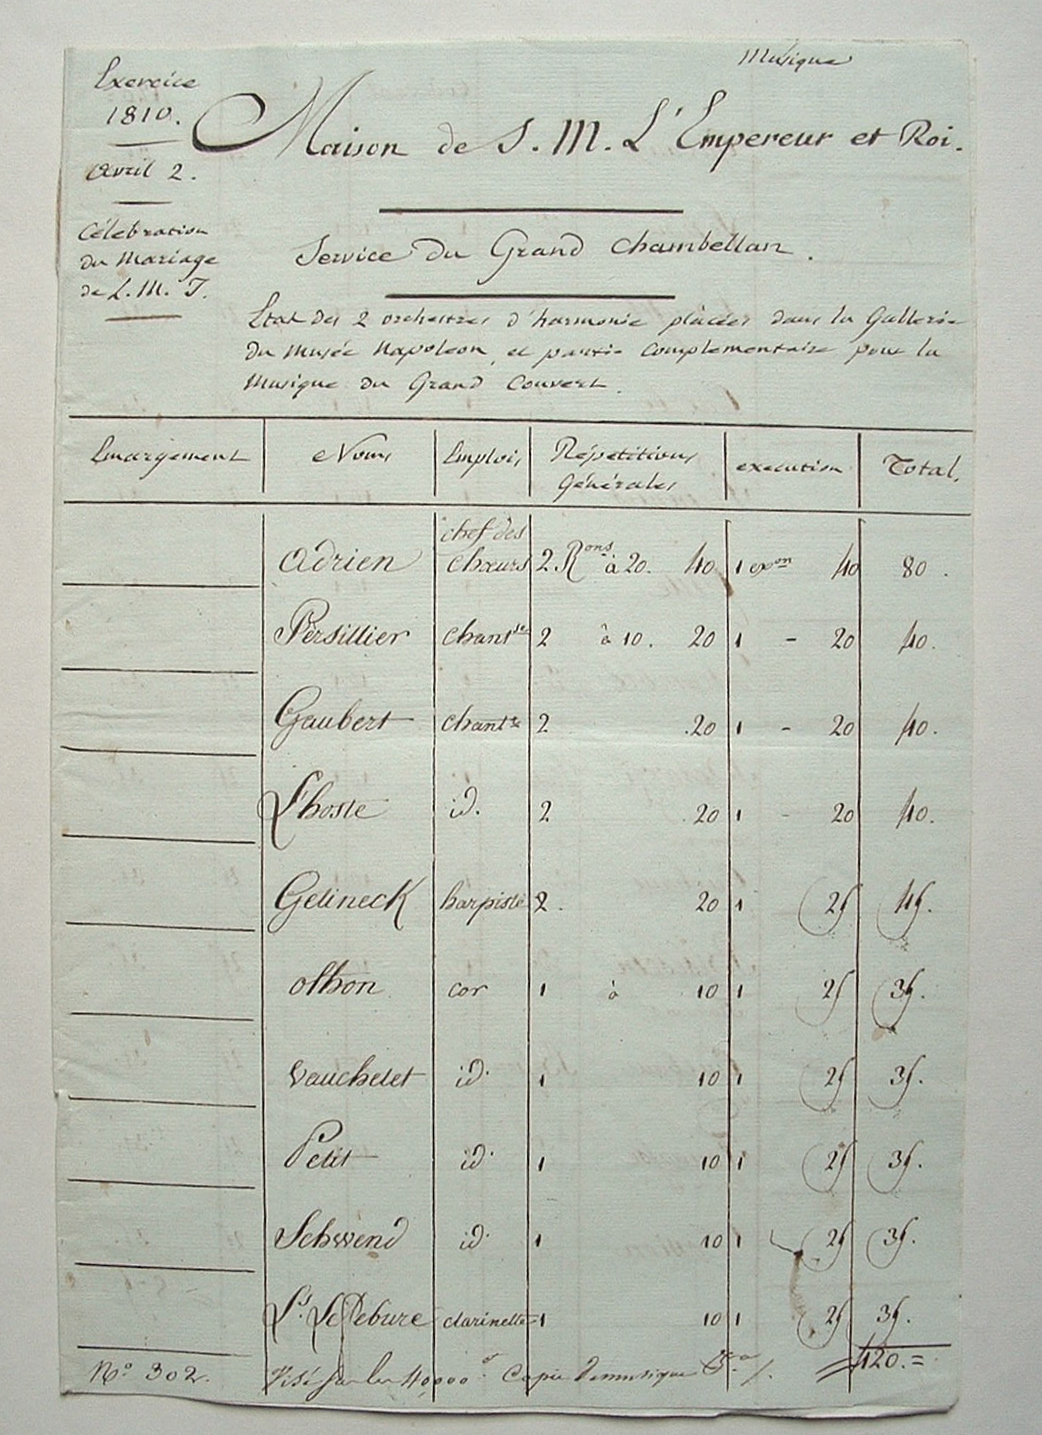 Musique
Exercice
1810.
Avril 2.
Célébration
du Mariage
de L. M. I.
Maison de S. M. L'Empereur et Roi.
Service du Grand Chambellan.
Etat des 2 orchestres d'harmonie placées dans la Gallerie
du Musée Napoleon, et partie complementaire pour la
Musique du Grand Couvert.
Emargement Noms Emplois Répétitions Générales execution Total.
Adrien chef des chœurs 2. Rons à 20. 40 1 exon 40 80.
Persillier chantse 2 à 10. 20 1 - 20 40.
Gaubert chantr 2 20 1 - 20 40.
L'hoste id. 2 20 1 - 20 40.
Gelineck harpiste 2. 20 1 25 45.
Othon cor 1 à 10 1 25 35.
Vauchelet id. 1 10 1 25 35.
Petit id. 1 10 1 25 35.
Schwend id. 1 10 1 25 35.
Ls. Lefebure clarinette 1 10 1 25 35.
420.=
No. 302. Visé sur les 40,000. Copie de musique